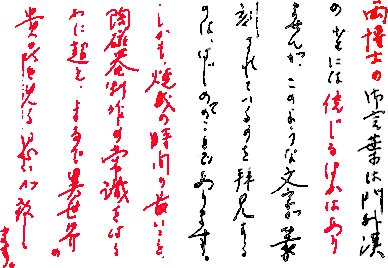 両博士の御言葉は門外漢
の小生には信じる外はあり
ませんが、このような文字が叢
刻されているのを拝見する
のは、はじめてのことであります。
しかも、焼成の時間の長いこと
陶磁器制作の常識をはる
かに超え、まるで異世界の
貴品を見る思いが致し
ます。